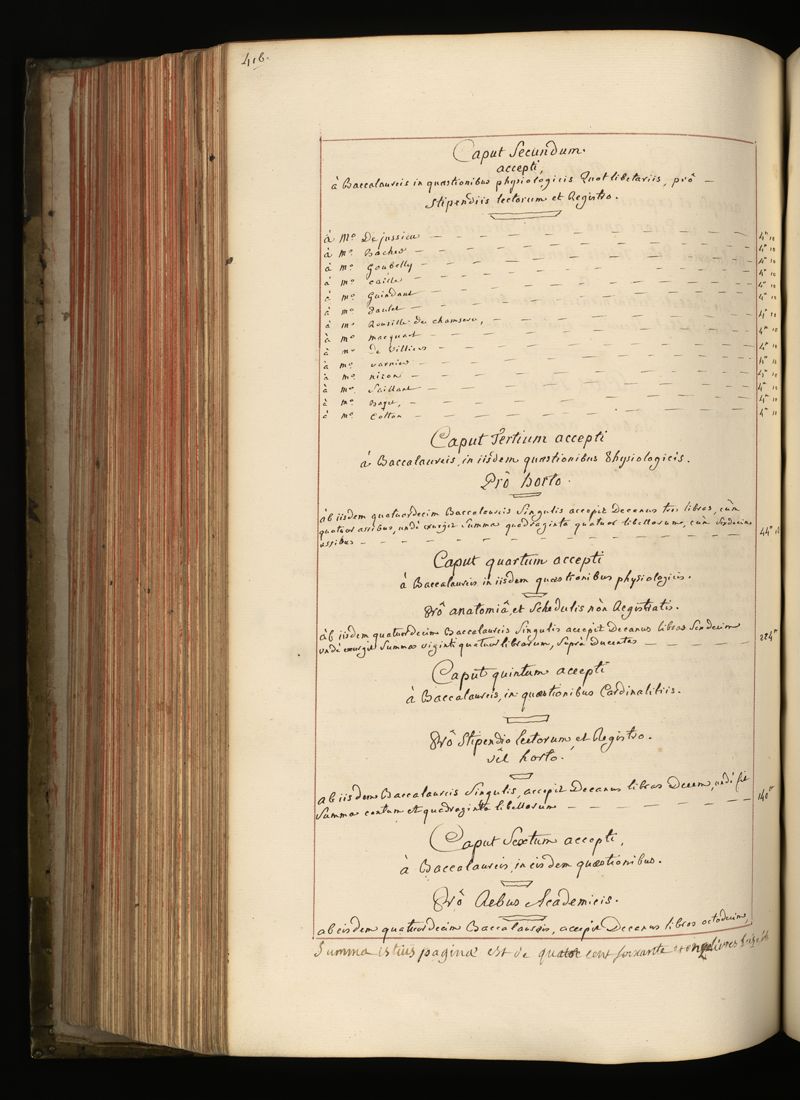 416.
Caput Secundum.
accepti,
à Baccalaureis in quæstionibus physiologicis Quot libetariis, prô —
Stipendiis lectorum et Registro.
à Mo. Dejussieu — 4tt 10
à Mo. Bacher — 4tt 10
à Mo. Goubelly — 4tt 10
à Mo. Caille — 4tt 10
à Mo. Guindant — 4tt 10
à Mo. Paulet — 4tt 10
à Mo. Roussille de chamseru, — 4tt 10
à Mo. macquart — 4tt 10
à Mo. De Villiers — 4tt 10
à Mo. varnier — 4tt 10
à Mo. nizon — 4tt 10
à Mo. Saillant — 4tt 10
à Mo. Baget, — 4tt 10
à Mo. Cotton — 4tt 10
Caput Tertium accepti
à Baccalaureis, in iisdem quæstionibus Physiologicis.
Prô horto.
àb iisdem quatuordecim Baccalaureis Singulis accepit Decanus tres libras, cùm
quatuor assibus, undè exurgit Summa quadraginta quatuor libellarum, cùm Sexdecim
assibus — 44tt
Caput quartum accepti
à Baccalaureis in iisdem quæstionibus physiologicis.
Prô anatomiâ, et Schedulis nòn Registratis.
àb iisdem quatuordecim Baccalaureis Singulis accepit Decanus libras Sexdecim
undè exurgit Summa viginti quatuor librarum, Suprà Ducentas — 224tt
Caput quintum accepti
à Baccalaureis, in quæstionibus Cardinalitiis.
Prô Stipendio lectorum, et Registro.
vèl horto.
ab iisdem Baccalaureis Singulis, accepit Decanus libras Decem, undè fit
Summa centum et quadraginta libellarum — 140tt
Caput Sextum accepti,
à Baccalaureis, in eisdem quæstionibus.
Prô Rebus Academicis.
ab eisdem quatuordecim Baccalaureis, accepit Decanus libras octodecim,
Summa istius paginæ est de quatre cent soixante et onze livres Seize